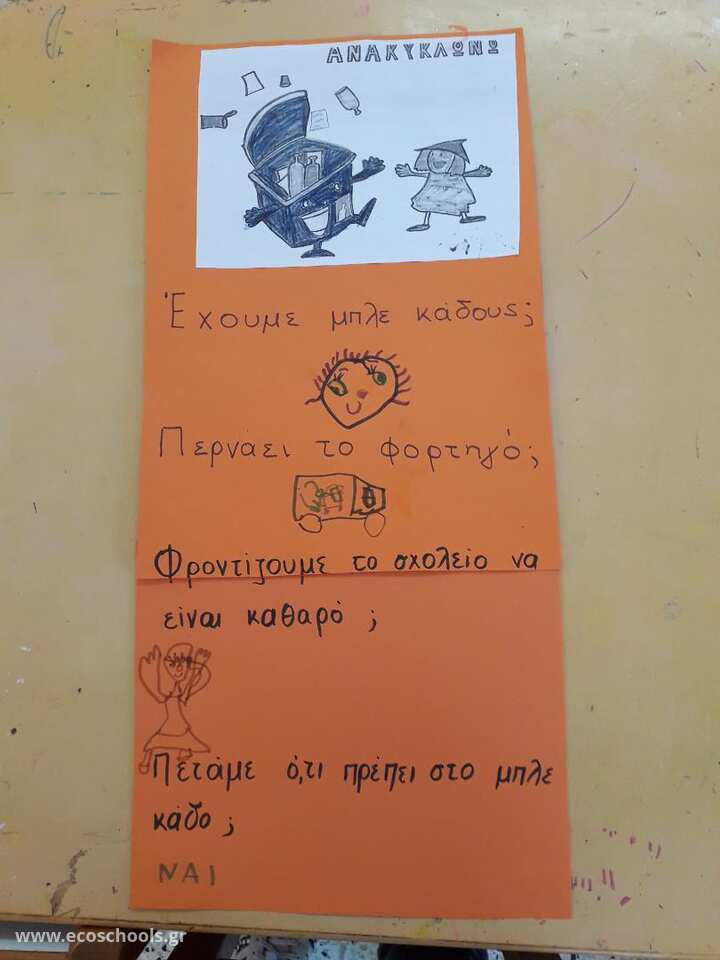 ΑΝΑΚΥΚΛΩΝΩ
Έχουμε μπλε κάδους;
Περνάει το φορτηγό;
Φροντίζουμε το σχολείο να
είναι καθαρό ;
Πετάμε ό,τι πρέπει στο μπλε
κάδο ;
ΝΑΙ
www.ecoschools.gr